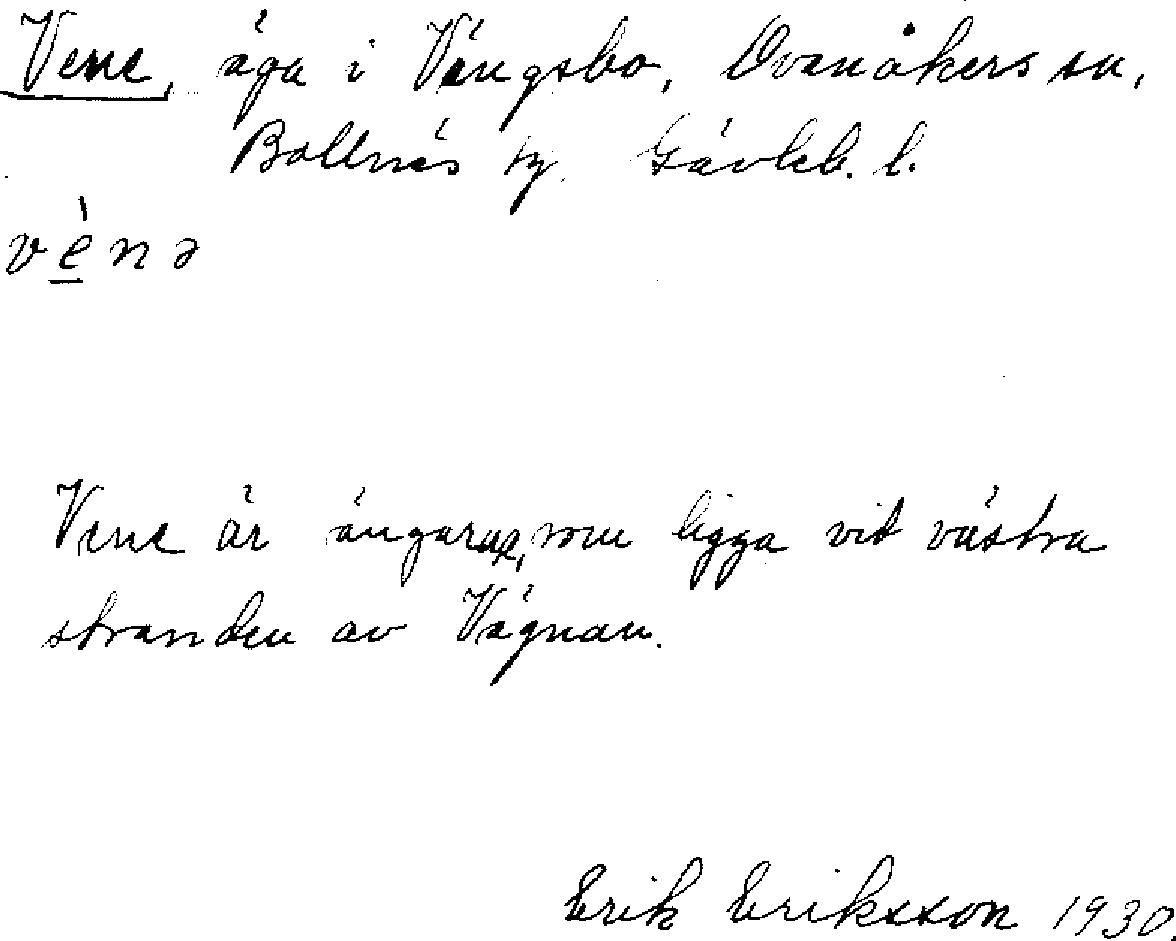 Vene, äga i Vängsbo, Ovanåkers sn,
Bollnäs tg. Gävleb. l.
vé̱nə
Vene är ängarna, som ligga vit västra
stranden av Vågnan.
Erik Eriksson 1930.